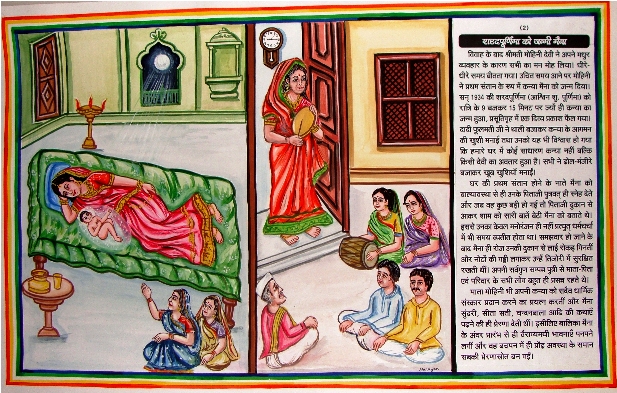 (2)
शरदपूर्णिमा को जन्मी मैना
विवाह के बाद श्रीमती मोहिनी देवी ने अपने मधुर
व्यवहार के कारण सभी का मन मोह लिया। धीरे-
धीरे समय बीतता गया। उचित समय आने पर मोहिनी
ने प्रथम संतान के रूप में कन्या मैना को जन्म दिया।
सन् 1934 की शरदपूर्णिमा (आश्विन शु. पूर्णिमा) को
रात्रि के 9 बजकर 15 मिनट पर ज्यों ही कन्या का
जन्म हुआ, प्रसूतिगृह में एक दिव्य प्रकाश फैल गया।
दादी फूलमती जी ने थाली बजाकर कन्या के आगमन
की खुशी मनाई तथा उनको यह भी विश्वास हो गया
कि हमारे घर में कोई साधारण कन्या नहीं बल्कि
किसी देवी का अवतार हुआ है। सभी ने ढोल-मंजीरे
बजाकर खूब खुशियाँ मनाईं।
घर की प्रथम संतान होने के नाते मैना को
बाल्यावस्था से ही उनके पिताजी पुत्रवत् ही स्नेह देते
और जब वह कुछ बड़ी हो गई तो पिताजी दुकान से
आकर शाम को सारी बातें बेटी मैना को बताते थे।
इससे उनका केवल मनोरंजन ही नहीं प्रत्युत् धर्मचर्चा
में भी समय व्यतीत होता था। समझदार हो जाने के
बाद मैना ही रोज उनकी दुकान से लाई रोकड़ गिनतीं
और नोटों की गड्डी लगाकर उन्हें तिजोरी में सुरक्षित
रखती थीं। अपनी सर्वगुण सम्पन्न पुत्री से माता-पिता
एवं परिवार के सभी लोग बहुत ही प्रसन्न रहते थे।
माता मोहिनी भी अपनी कन्या को सदैव धार्मिक
संस्कार प्रदान करने का प्रयत्न करतीं और मैना
सुंदरी, सीता सती, चन्दनबाला आदि की कथाएँ
पढ़ने की ही प्रेरणा देती थीं। इसीलिए बालिका मैना
के अंदर प्रारंभ से ही वैराग्यमयी भावनाएँ पनपने
लगीं और वह बचपन में ही प्रौढ़ अवस्था के समान
सबकी प्रेरणास्रोत बन गईं।